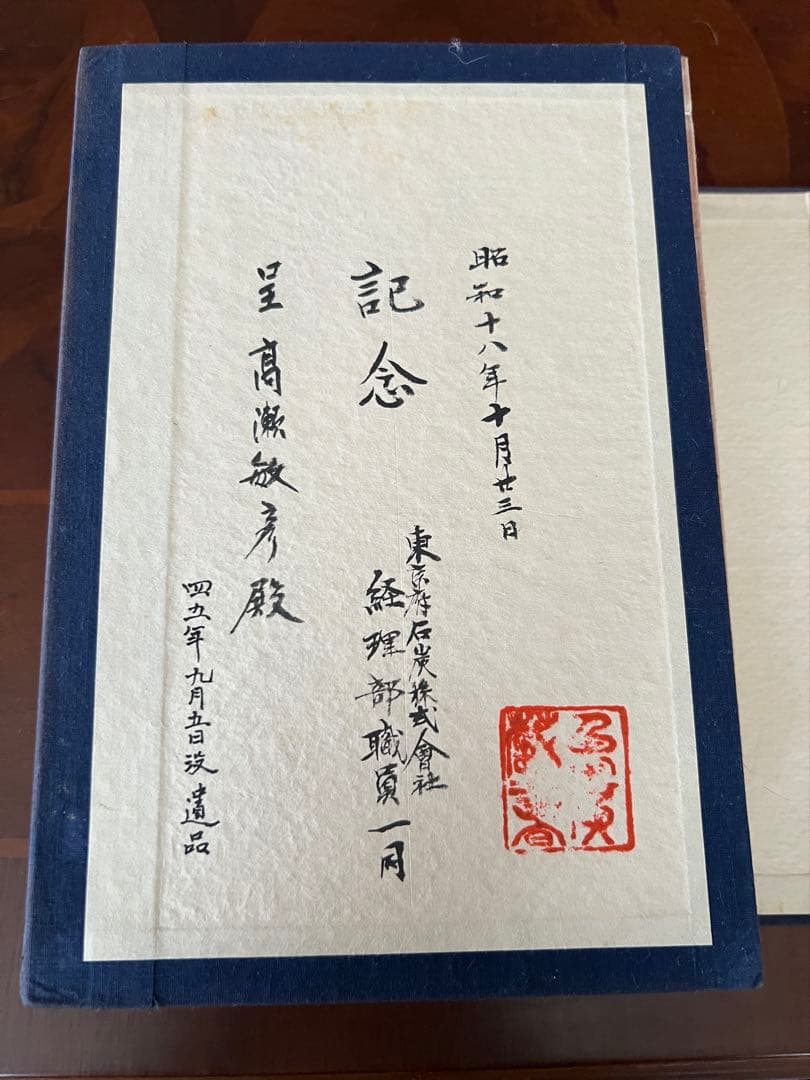 昭和十八年十月廿三日
記念
東京府石炭株式會社
経理部職員一同
呈 髙瀬敏彦殿
四五年九月五日没 遺品